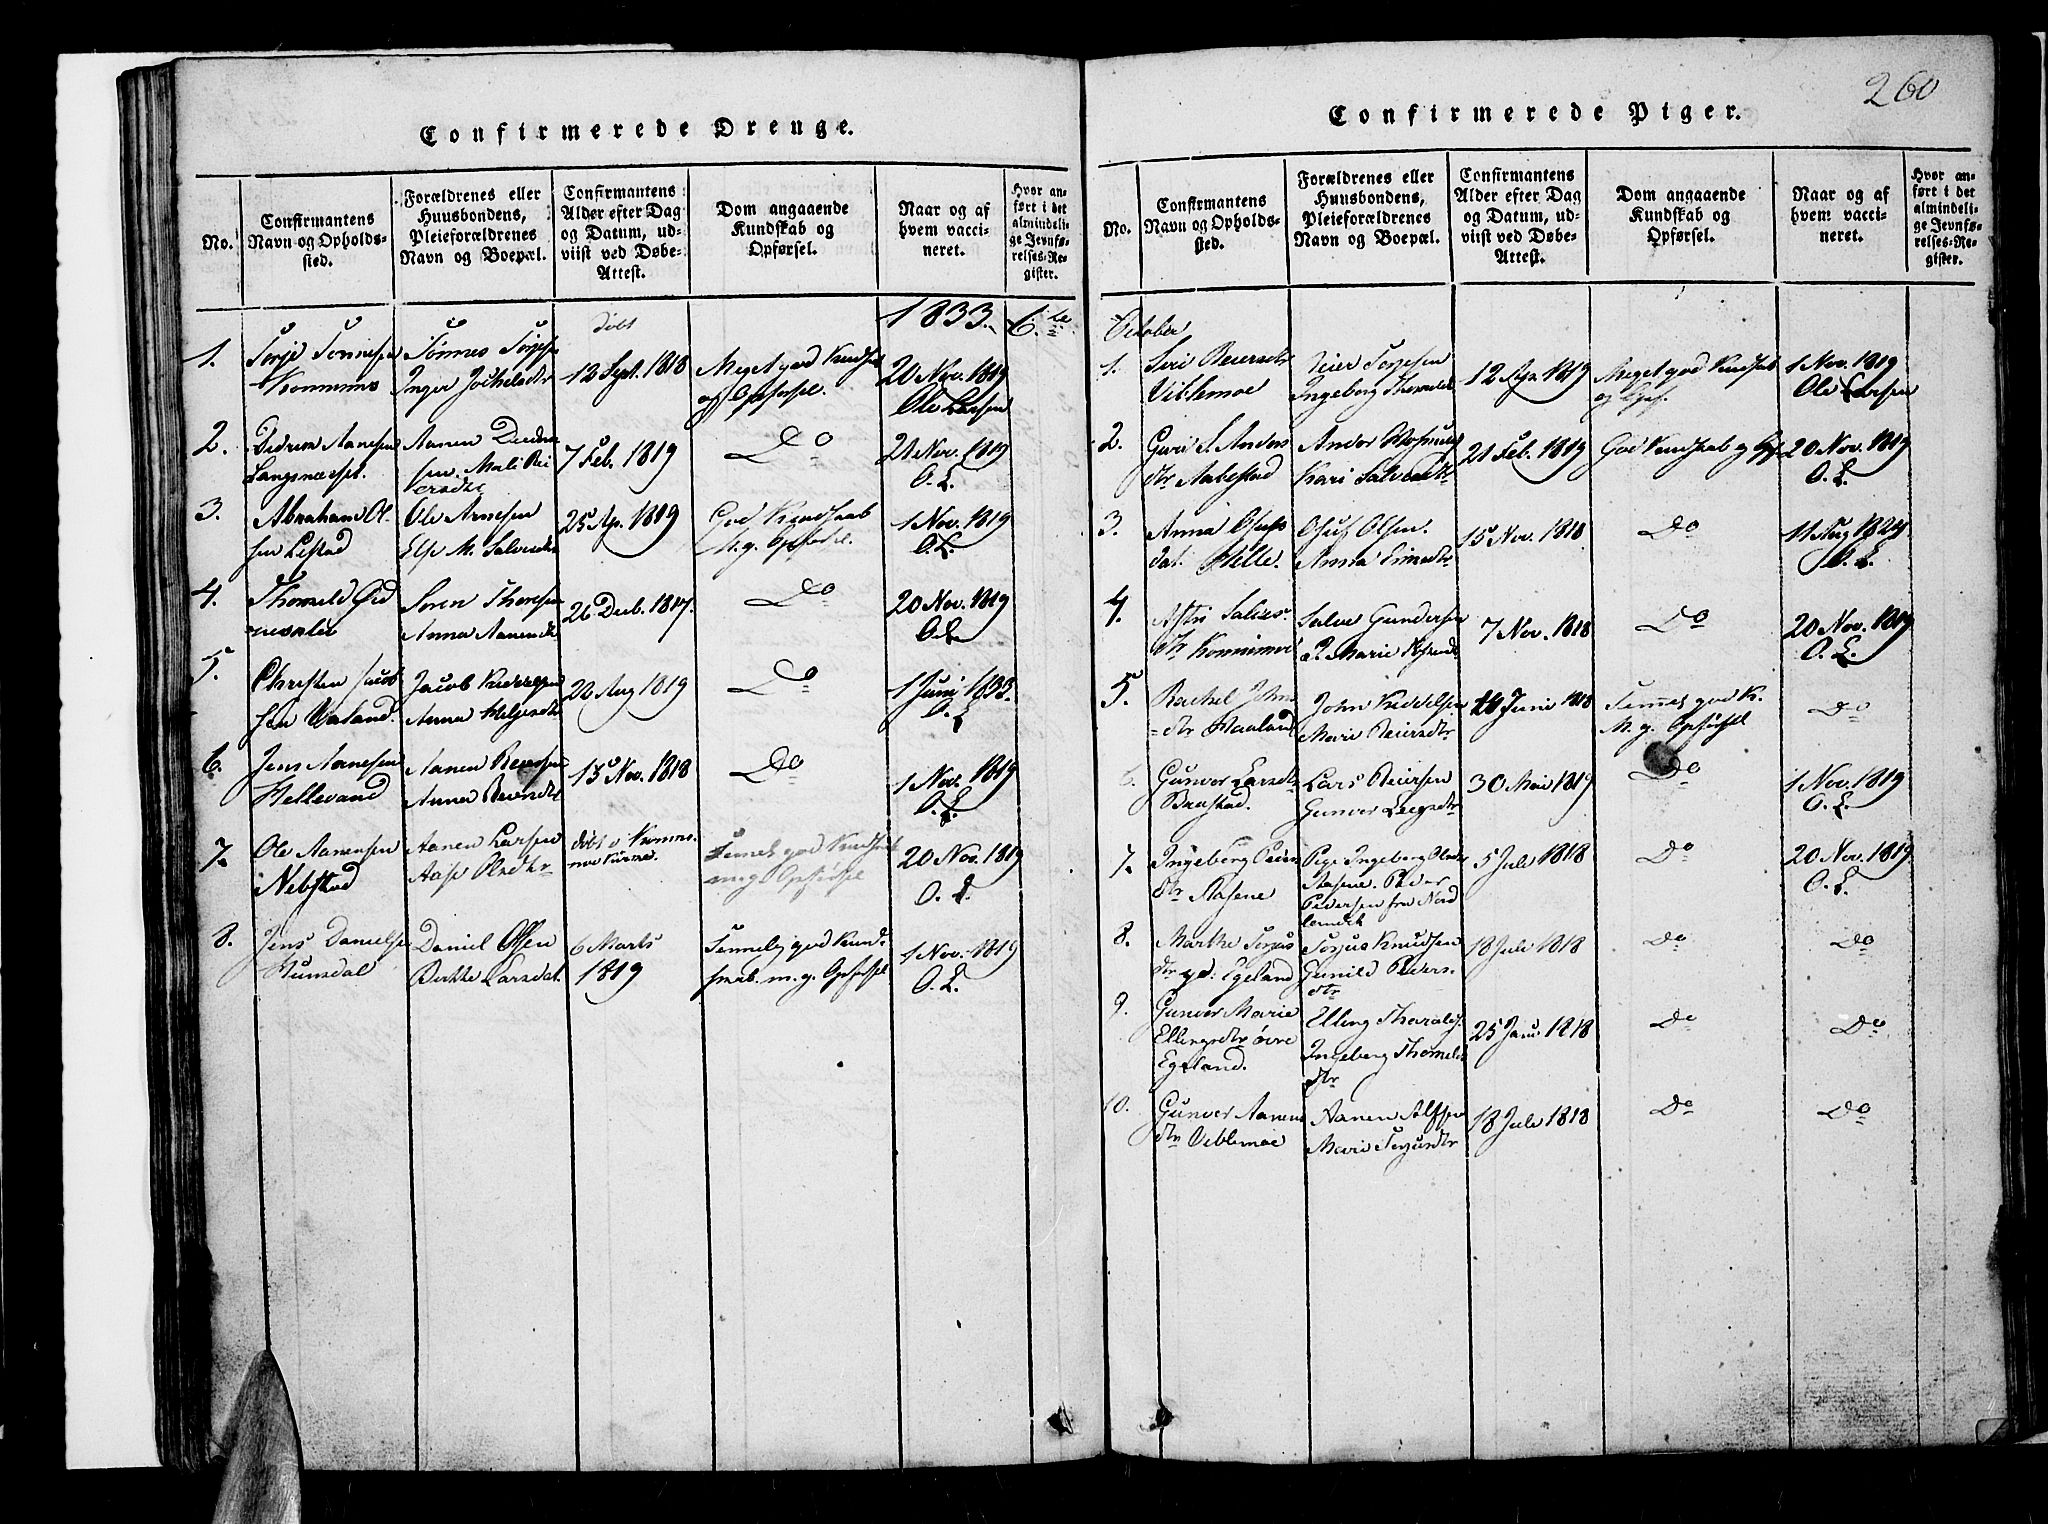 260
Confirmerede Drenge.
No.
Confirmantens
Navn og Opholds-
sted.
Forældrenes eller
Huusbondens,
Pleieforældrenes
Navn og Boepæl.
Confirmantens
Alder efter Dag
og Datum, ud-
viist ved Døbe-
Attest.
Dom angaaende
Kundskab og
Opførsel.
Naar og af
hvem vacci-
neret.
Hvor an-
ført i det
almindeli-
ge Jevnfø-
relses-Re-
gister.
døbt
1833. 6te
1.
Tønnes Torjesen
Inger Jochelsdtr
12 Sept. 1818
Meget god Kundskab
og Opførsel.
20 Nov. 1819
Ole Larsen
2.
Didrik Aanesen
Aanen
7 Feb. 1819
Do
21 Nov. 1819
O. L.
3.
Abraham Ol-
sen Lestad
Ole Arnesen
25 Ap. 1819
God Kundskab
M. g. Opførsel.
1 Nov. 1819
O. L.
4.
Soren
Anna Aanensdtr
26 Decb. 1817.
Do
20 Nov. 1819
O. L.
5.
Christen Jacob
sen
Jacob
Anna Helgesdtr
22 Aug 1819
Do
1 Juni 1833.
O. L
6.
Jens Aanesen
Hellevand
Aanen Reiersen
Anna Reiersdtr
15 Nov. 1818
Do
1 Nov. 1819
O. L.
7.
Ole Aanensen
Nebstad
Aanen Larsen
Aase Olsdtr
døbt i
Temelig god Kundskab
m. g. Opførsel
20 Nov. 1819
O. L.
8.
Jens Danielsen
Hunsdal
Daniel Olsen
Berthe Larsdat.
6 Marts
1819
Temmelig god Kund-
skab. m. g. Opførsel
1 Nov. 1819
O. L.
Confirmerede Piger.
No.
Confirmantens
Navn og Opholds-
sted.
Forældrenes eller
Huusbondens,
Pleieforældrenes
Navn og Boepæl.
Confirmantens
Alder efter Dag
og Datum, ud-
viist ved Døbe-
Attest.
Dom angaaende
Kundskab og
Opførsel.
Naar og af
hvem vacci-
neret.
Hvor an-
ført i det
almindeli-
ge Jevnfø-
relses-Re-
gister.
October
1.
Siri Reiersdtr
Viblemoe
Reier Torjesen
Ingeborg Thomelsd
12 Apr. 1819
Meget god Kundskab
og Opf.
1 Nov. 1819
Ole Larsen
2.
Guri S. Anders
dtr Aabestad
Kari Salvesdtr
21 Feb. 1819
God Kundskab og Opf.
20 Nov. 1819
O. L.
3.
Anna Osufs
dat. Helle.
Osuf Olsen.
Anna
15 Nov. 1818
Do
1824
O. L.
4.
Astri Salves-
dtr
Salve Gundersen
7 Nov. 1818
Do
20 Nov. 1819
O. L.
5.
Rachel John
dtr Haaland
John
Mari Reiersdtr
Juni 1818
Temmel. god K.
M. g. Opførsel
Do
6.
Gunvor Larsdtr
Lars Reiersen
Gunvor
30 Mai 1819
Do
1 Nov. 1819
O. L.
7.
Ingeborg Peders
dtr Aasene
Pige Ingeborg Olsdtr
Aasene. Peder
Pedersen fra Nord
landet
5 Juli 1818
Do
20 Nov. 1819
O. L.
8.
Marthe Torjus
dtr yd: Egeland
Torjus Knudsen
Gunild Peders.
dtr
18 Juli 1818
Do
Do
9.
Gunvor Marie
Ellingsdtr øvre
Egeland.
Elling Tharalds.
Ingeborg Thomels
dtr
25 Janu 1818
Do
Do
10.
Gunvor Aanens
dtr Viblemoe
Aanen Alfsen
Mari Torjusdtr
18 Juli 1818
Do
Do